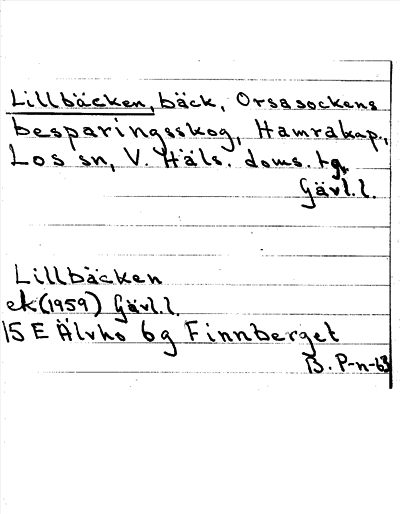 Lillbäcken, bäck, Orsasockens
besparingsskog, Hamrakap.,
Los sn, V. Häls. doms. tg.
Gävl.l.
Lillbäcken
ek (1959) Gävl.l.
15 E Älvho 6g Finnberget
B. P-n-63